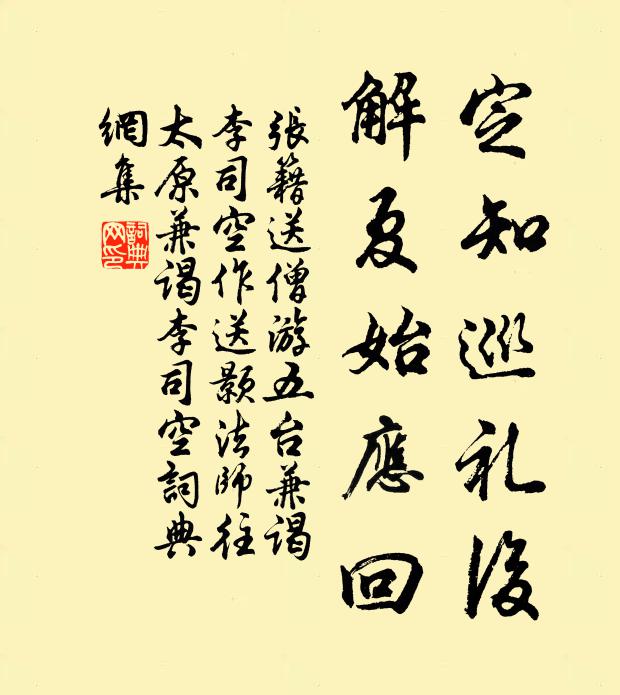 定知巡礼後
解夏始應回
張籍送僧游五台兼謁
李司空作送颢法師往
太原兼謁李司空詞典
網集
詞典網印